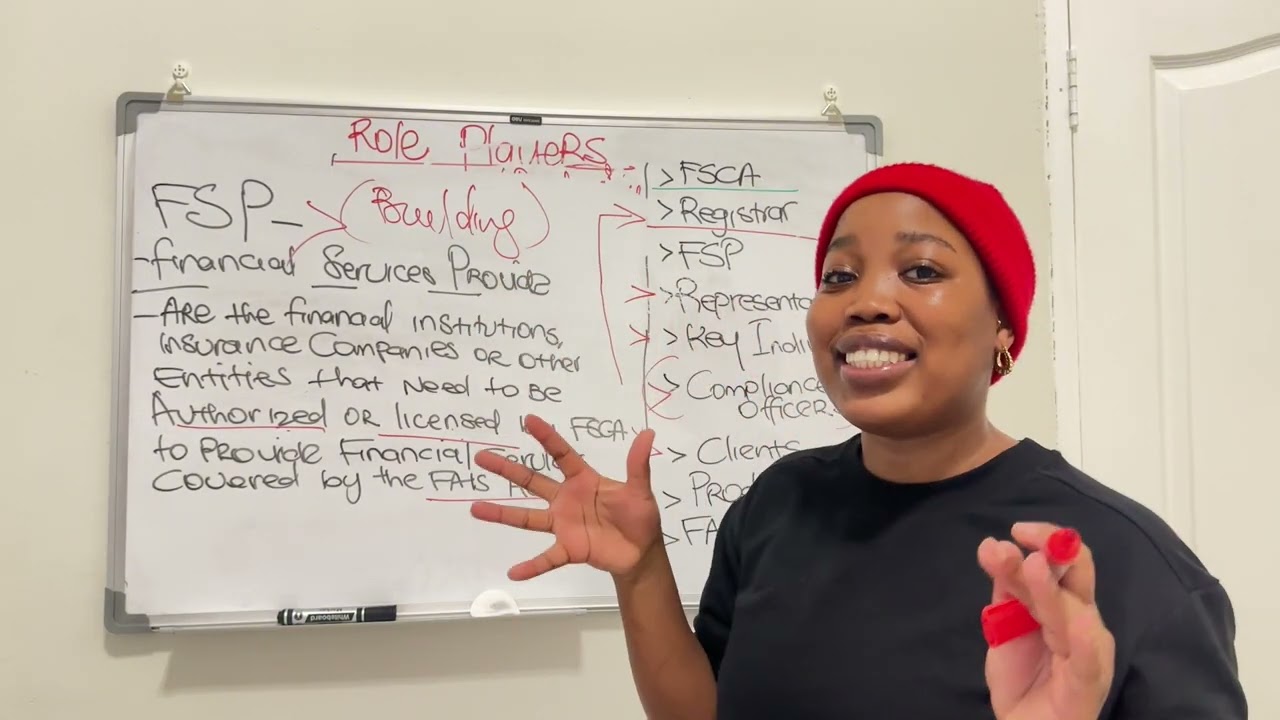 Role Players
FSP -
(Building)
- Financial Services Provide
- ARE the financial institutions,
insurance Companies or other
Entities that need to be
Authorized or licensed by FSCA
to provide Financial Services
covered by the FAIS
> FSCA
> Registrar
> FSP
> Representa
> Key Indiv
> Compliance
officers
> Clients
> Prod
> FA
Whiteboard